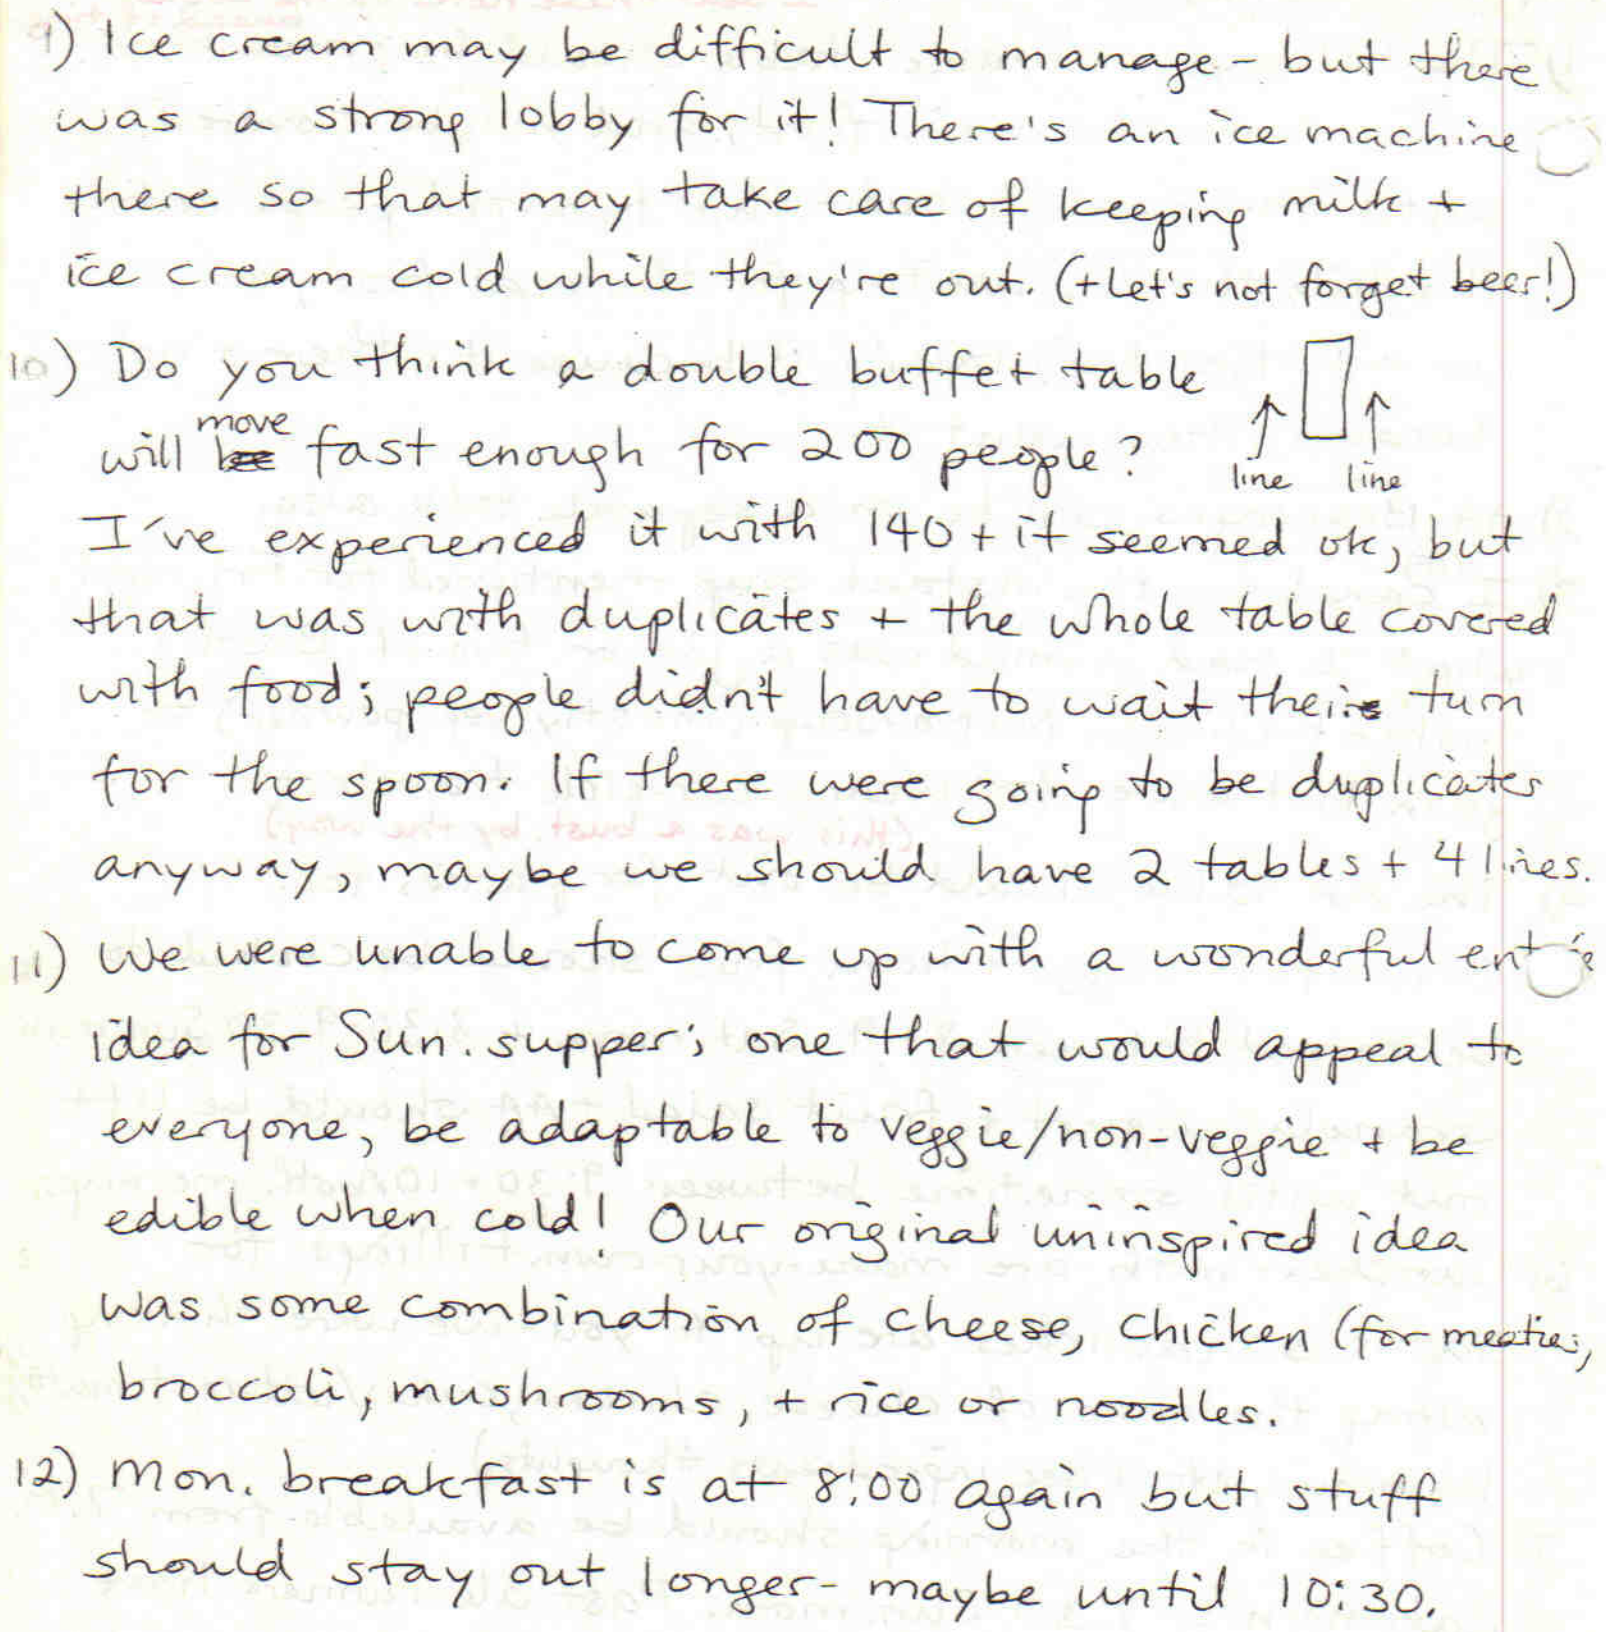 9) Ice cream may be difficult to manage - but there
was a strong lobby for it! There's an ice machine
there so that may take care of keeping milk +
ice cream cold while they're out. (+ let's not forget beer!)
10) Do you think a double buffet table
will move fast enough for 200 people?
line line
I've experienced it with 140 + it seemed ok, but
that was with duplicates + the whole table covered
with food; people didn't have to wait their turn
for the spoon. If there were going to be duplicates
anyway, maybe we should have 2 tables + 4 lines.
11) We were unable to come up with a wonderful entrée
idea for Sun. supper; one that would appeal to
everyone, be adaptable to veggie/non-veggie + be
edible when cold! Our original uninspired idea
was some combination of cheese, chicken (for meaties,
broccoli, mushrooms, + rice or noodles.
12) Mon. breakfast is at 8:00 again but stuff
should stay out longer - maybe until 10:30.